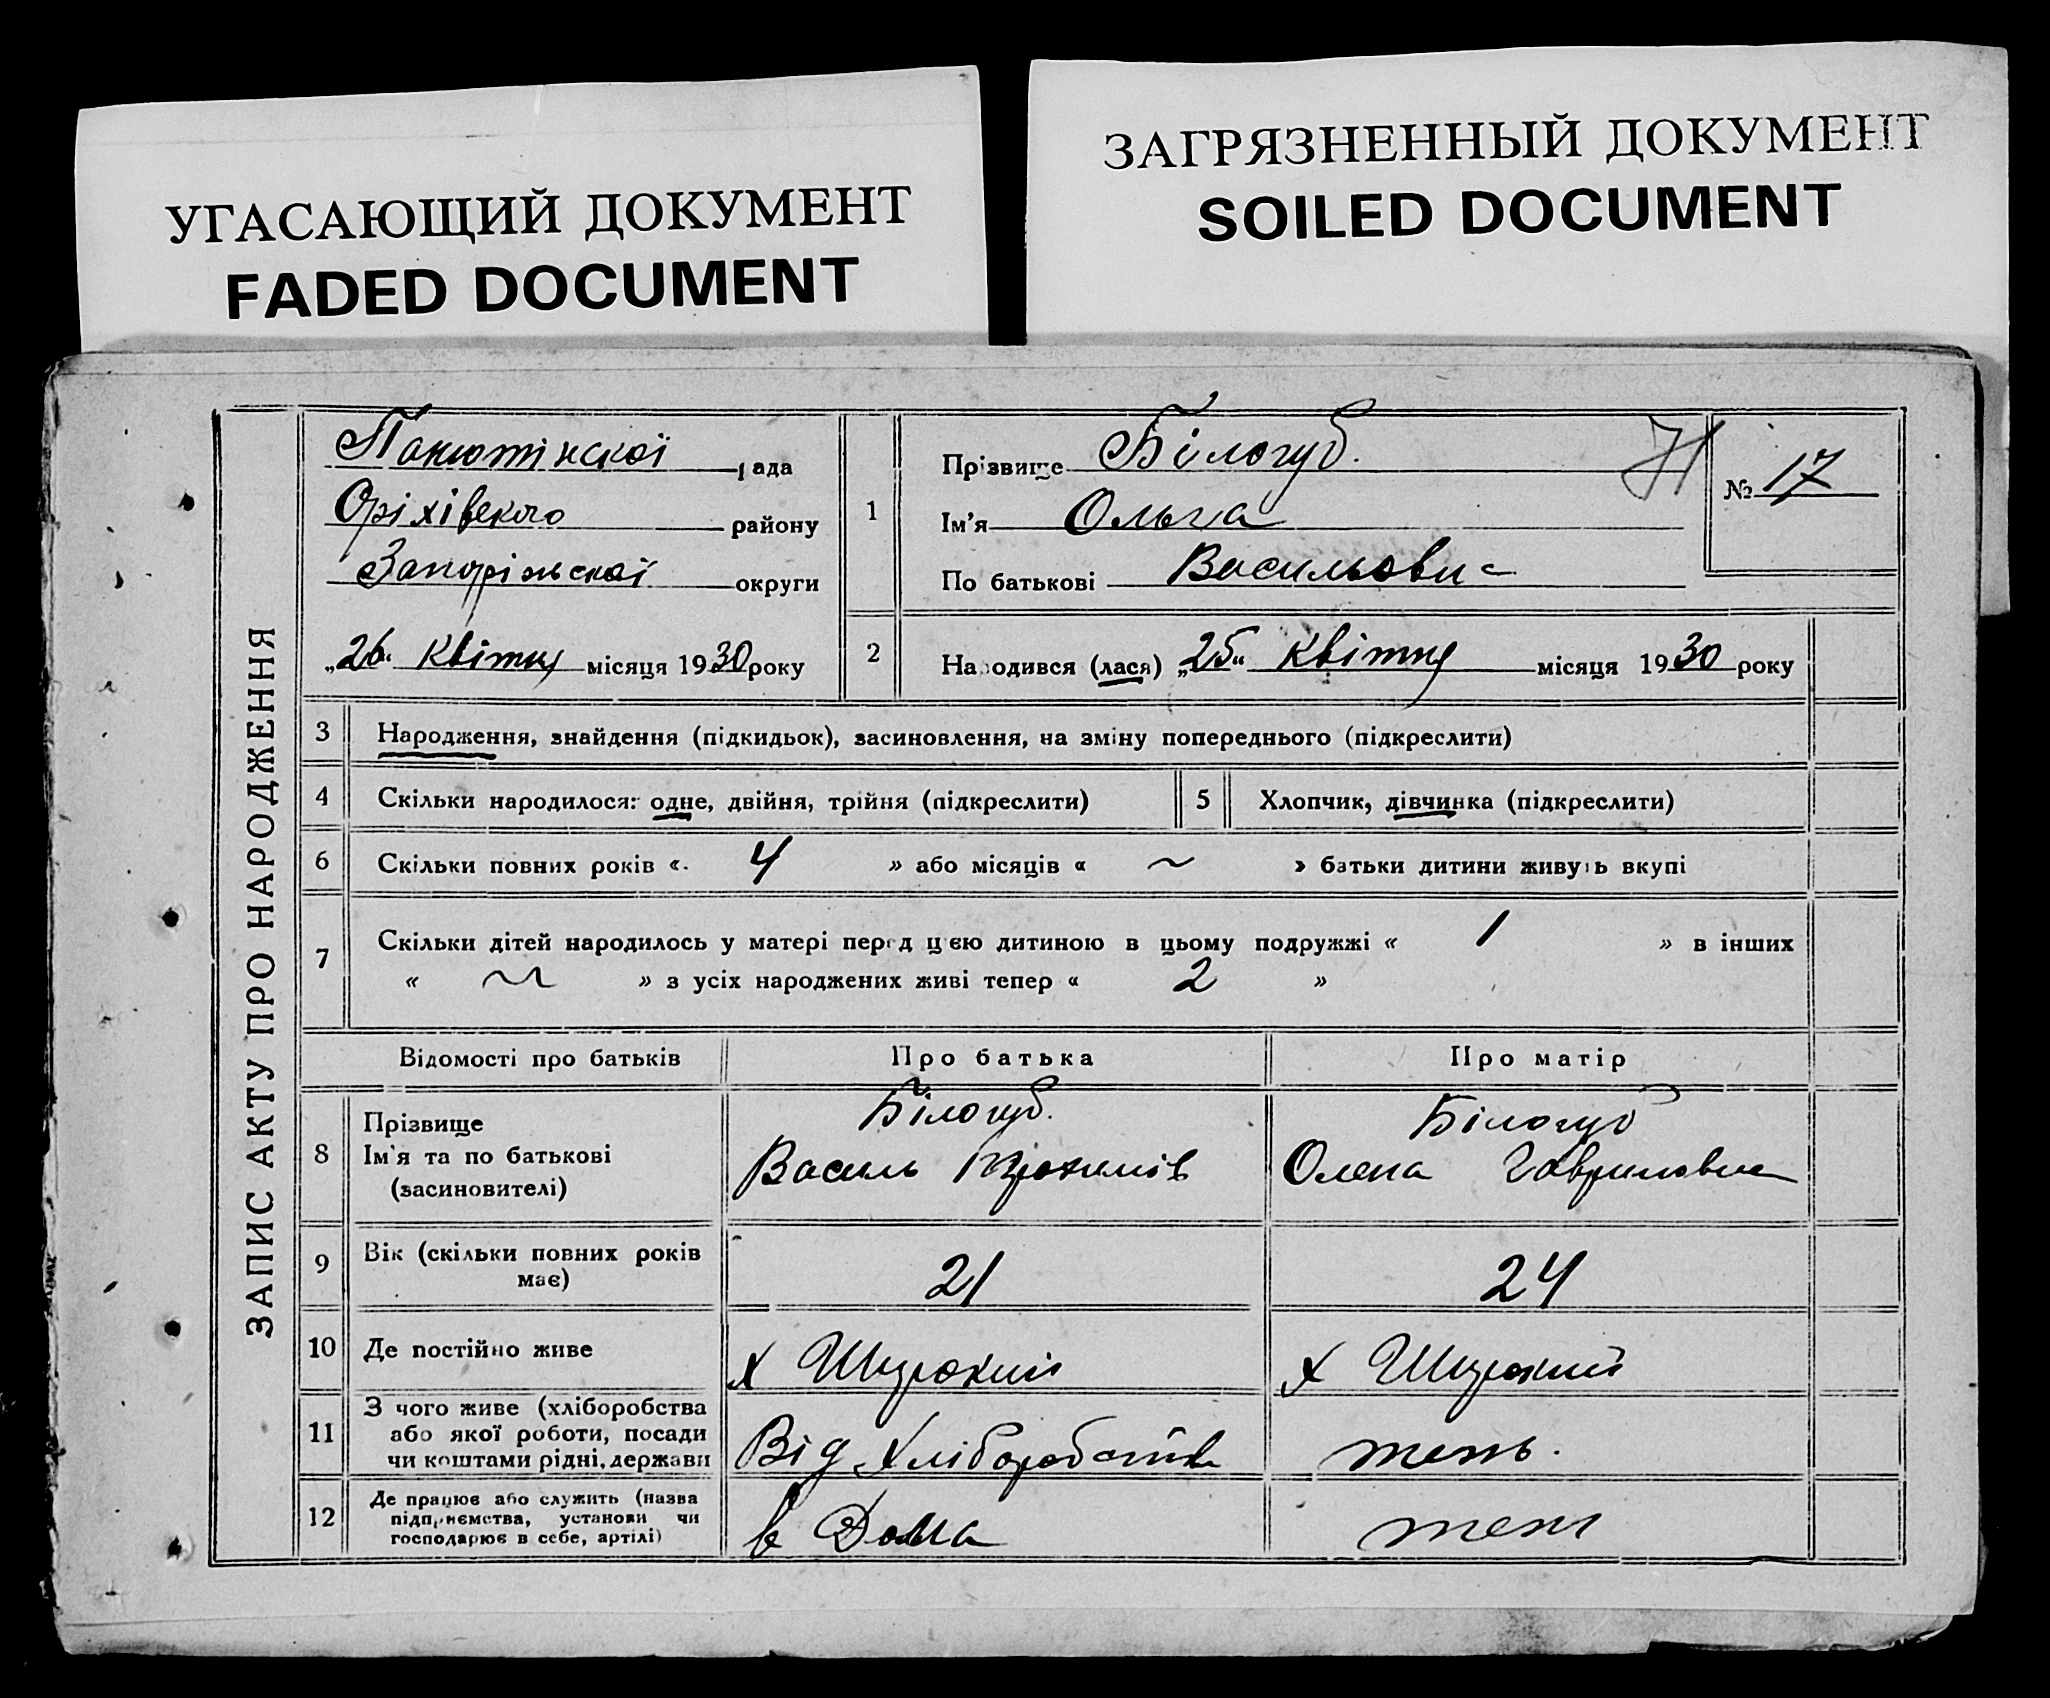 УГАСАЮЩИЙ ДОКУМЕНТ
FADED DOCUMENT
ЗАГРЯЗНЕННЫЙ ДОКУМЕНТ
SOILED DOCUMENT
ЗАПИС АКТУ ПРО НАРОДЖЕННЯ
Панютінскої рада
Оріхівского району
Запоріжської округи
„26" квітня місяця 1930 року
1
Прізвище Білогуб.
Ім'я Ольга
По батькові Васильовн
№ 17
2
Народився (лася) „25" квітня місяця 1930 року
3 Народження, знайдення (підкидьок), засиновлення, на зміну попереднього (підкреслити)
4 Скільки народилося: одне, двійня, трійня (підкреслити)
5 Хлопчик, дівчинка (підкреслити)
6 Скільки повних років « 4 » або місяців « ~ » батьки дитини живуть вкупі
7 Скільки дітей народилось у матері перед цією дитиною в цьому подружжі « 1 » в інших
« ~ » з усіх народжених живі тепер « 2 »
Відомості про батьків Про батька Про матір
8 Прізвище
Ім'я та по батькові
(засиновителі)
Білогуб.
Василь
Білогуб
Олена Гавриловна
9 Вік (скільки повних років
має)
21
24
10 Де постійно живе
х Широкий
х Широкий
11 З чого живе (хліборобства
або якої роботи, посади
чи коштами рідні, держави
Від хліборобства
тежь.
12 Де працює або служить (назва
підприємства, установи чи
господарює в себе, артілі)
в Дома
теж